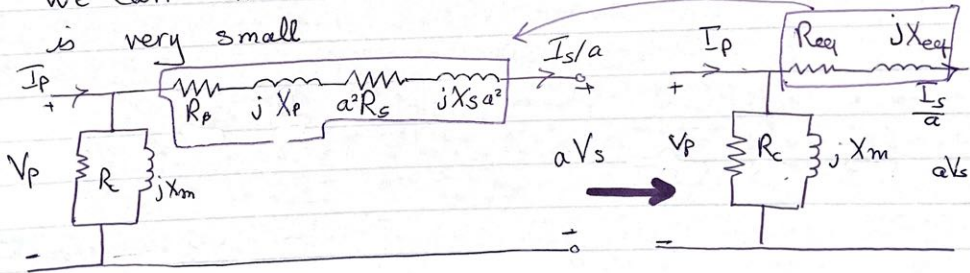 is very small
Ip
Is/a
+
+
Rp
jXp
a²Rs
jXsa²
Vp
Rc
jXm
aVs
-
-
Ip
Req
jXeq
+
Is/a
Vp
Rc
jXm
aVs
-